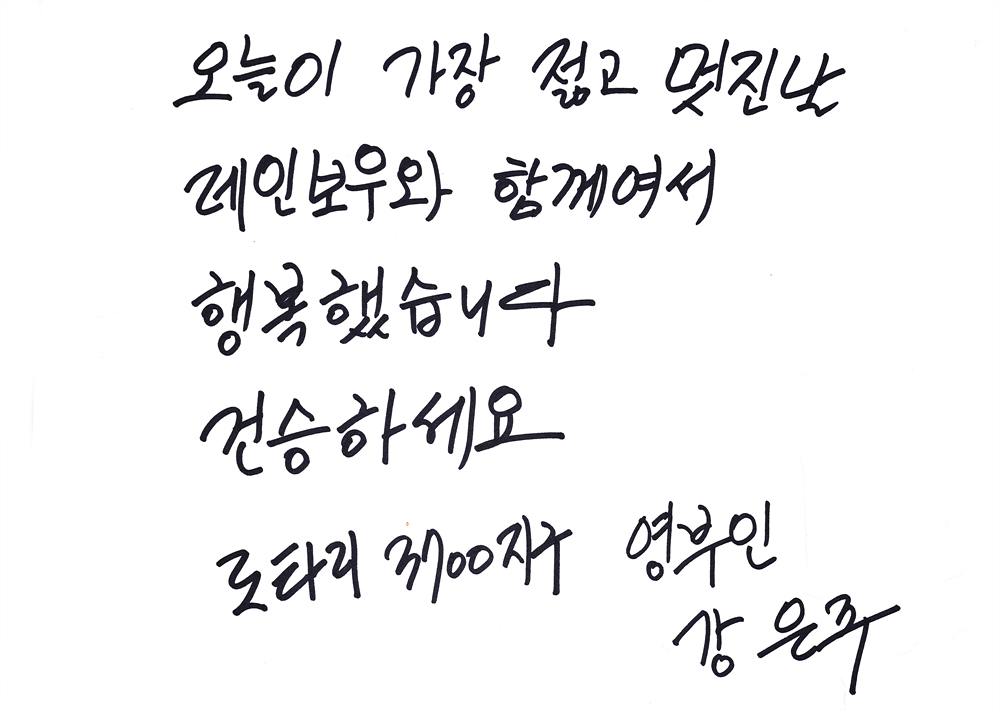 오늘이 가장 젊고 멋진날
레인보우와 함께여서
행복했습니다
건승하세요
로타리 3700지구 영부인
강은주